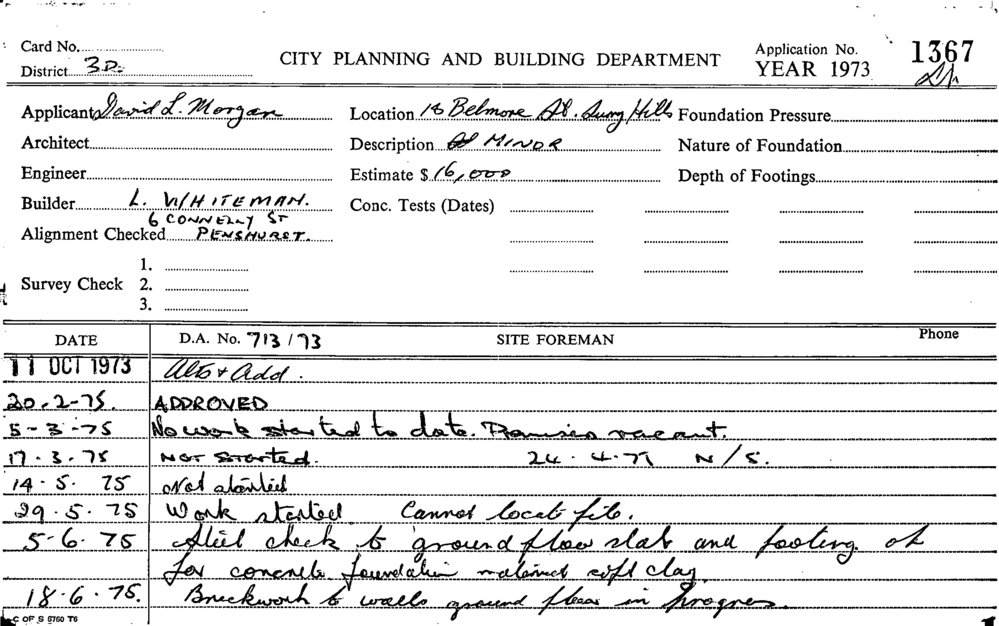 Card No.
District 3D.
CITY PLANNING AND BUILDING DEPARTMENT
Application No. 1367
YEAR 1973
Applicant David L. Morgan
Location 18 Belmore St. Surry Hills
Foundation Pressure
Architect
Description MINOR
Nature of Foundation
Engineer
Estimate $ 16,000
Depth of Footings
Builder L. WHITEMAN.
6 CONNELLY ST
Conc. Tests (Dates)
Alignment Checked PENSHURST.
Survey Check 1.
2.
3.
DATE D.A. No. 713/73 SITE FOREMAN Phone
11 OCT 1973 Alts + Add.
20.2-75. APPROVED
5-3-75 No work started to date. Premises vacant.
17.3.75 NOT STARTED. 24.4.75 N/S.
14.5.75 Not started
29.5.75 Work started. Cannot locate file.
5.6.75 Steel check to ground floor slab and footing ok
for concrete foundation material soft clay.
18.6.75. Brickwork to walls ground floor in progress.
C OF S 5750 T6